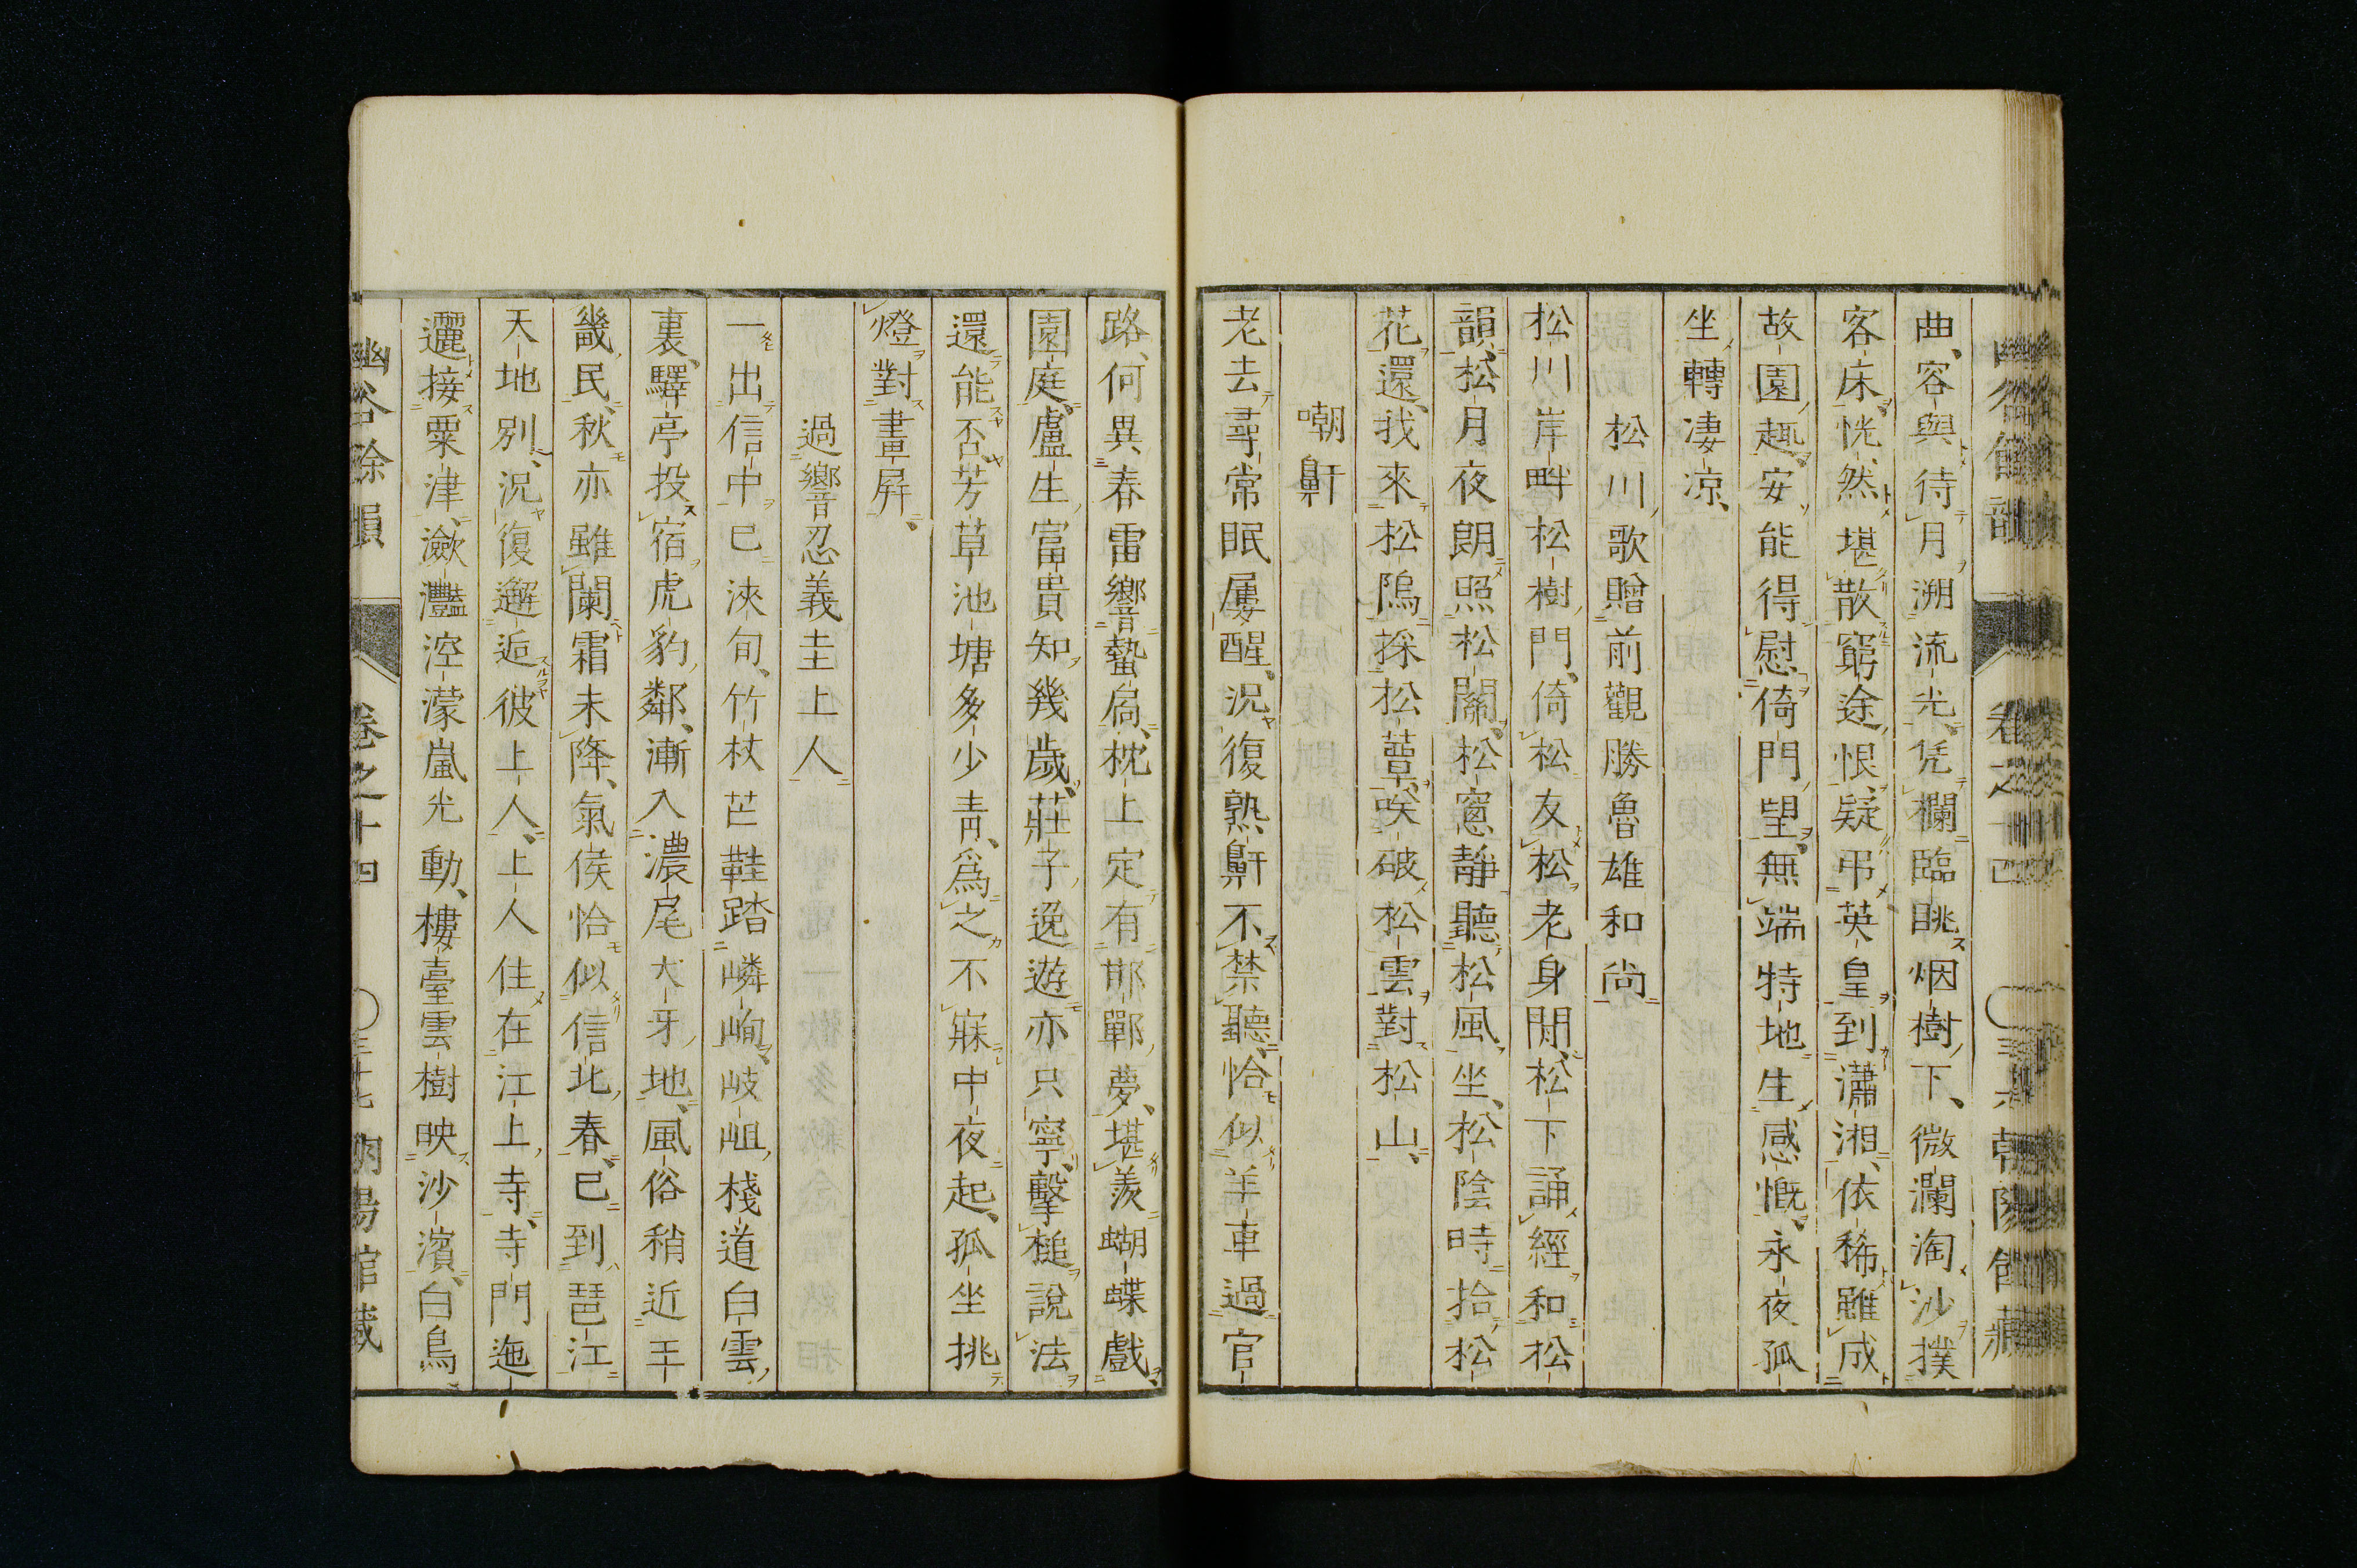 曲、容與待月溯流光、凭欄臨眺烟樹下、微瀾淘沙撲
客床、恍然堪散窮途恨、疑弔英皇到瀟湘、依稀雖成
故園趣、安能得慰倚門望、無端特地生感慨、永夜孤
坐轉凄凉、
松川歌贈前觀勝魯雄和尚
松川岸畔松樹門、倚松友松老身閒、松下誦經和松
韻、松月夜朗照松關、松窓靜聽松風坐、松陰時拾松
花還、我來松隖採松蕈、唉破松雲對松山、
嘲鼾
老去尋常眠屢醒、況復熟鼾不禁聽、恰似羊車過官
路、何異春雷響蟄扃、枕上定有邯鄲夢、堪羨蝴蝶戲
園庭、盧生富貴知幾歲、莊子逸遊亦只寧、擊槌說法
還能否、芳草池塘多少青、爲之不寐中夜起、孤坐挑
燈對畫屛、
過響忍義圭上人
一出信中已浹旬、竹杖芒鞋踏嶙峋、岐岨棧道白雲
裏、驛亭投宿虎豹鄰、漸入濃尾犬牙地、風俗稍近王
畿民、秋亦雖闌霜未降、氣侯恰似信北春、已到琶江
天地別、況復邂逅彼上人、上人住在江上寺、寺門迤
邐接粟津、瀲灩涳濛嵐光動、樓臺雲樹映沙濱、白鳥
幽谷餘韻 卷之十四 〇三十七 朝陽館藏